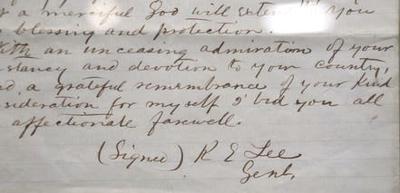 a merciful God will exten you
blessing and protection.
With an unceasing admiration of your
stancy and devotion to your Country,
d a grateful remembrance of your Kind
sideration for myself I bid you all
affectionate farewell.
(Signed) R E Lee
Genl.